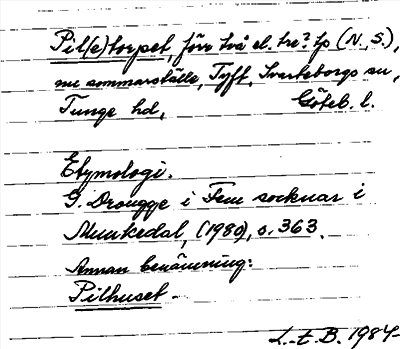 Pil(e)torpet, förr två el. tre? tp (N., S.),
nu sommarställe, Tyft, Svarteborgs sn,
Tunge hd, Göteb. l.
Etymologi.
G. Drougge i Fem socknar i
Munkedal, (1980), s. 363.
Annan benämning:
Pilhuset -
L-t B. 1984